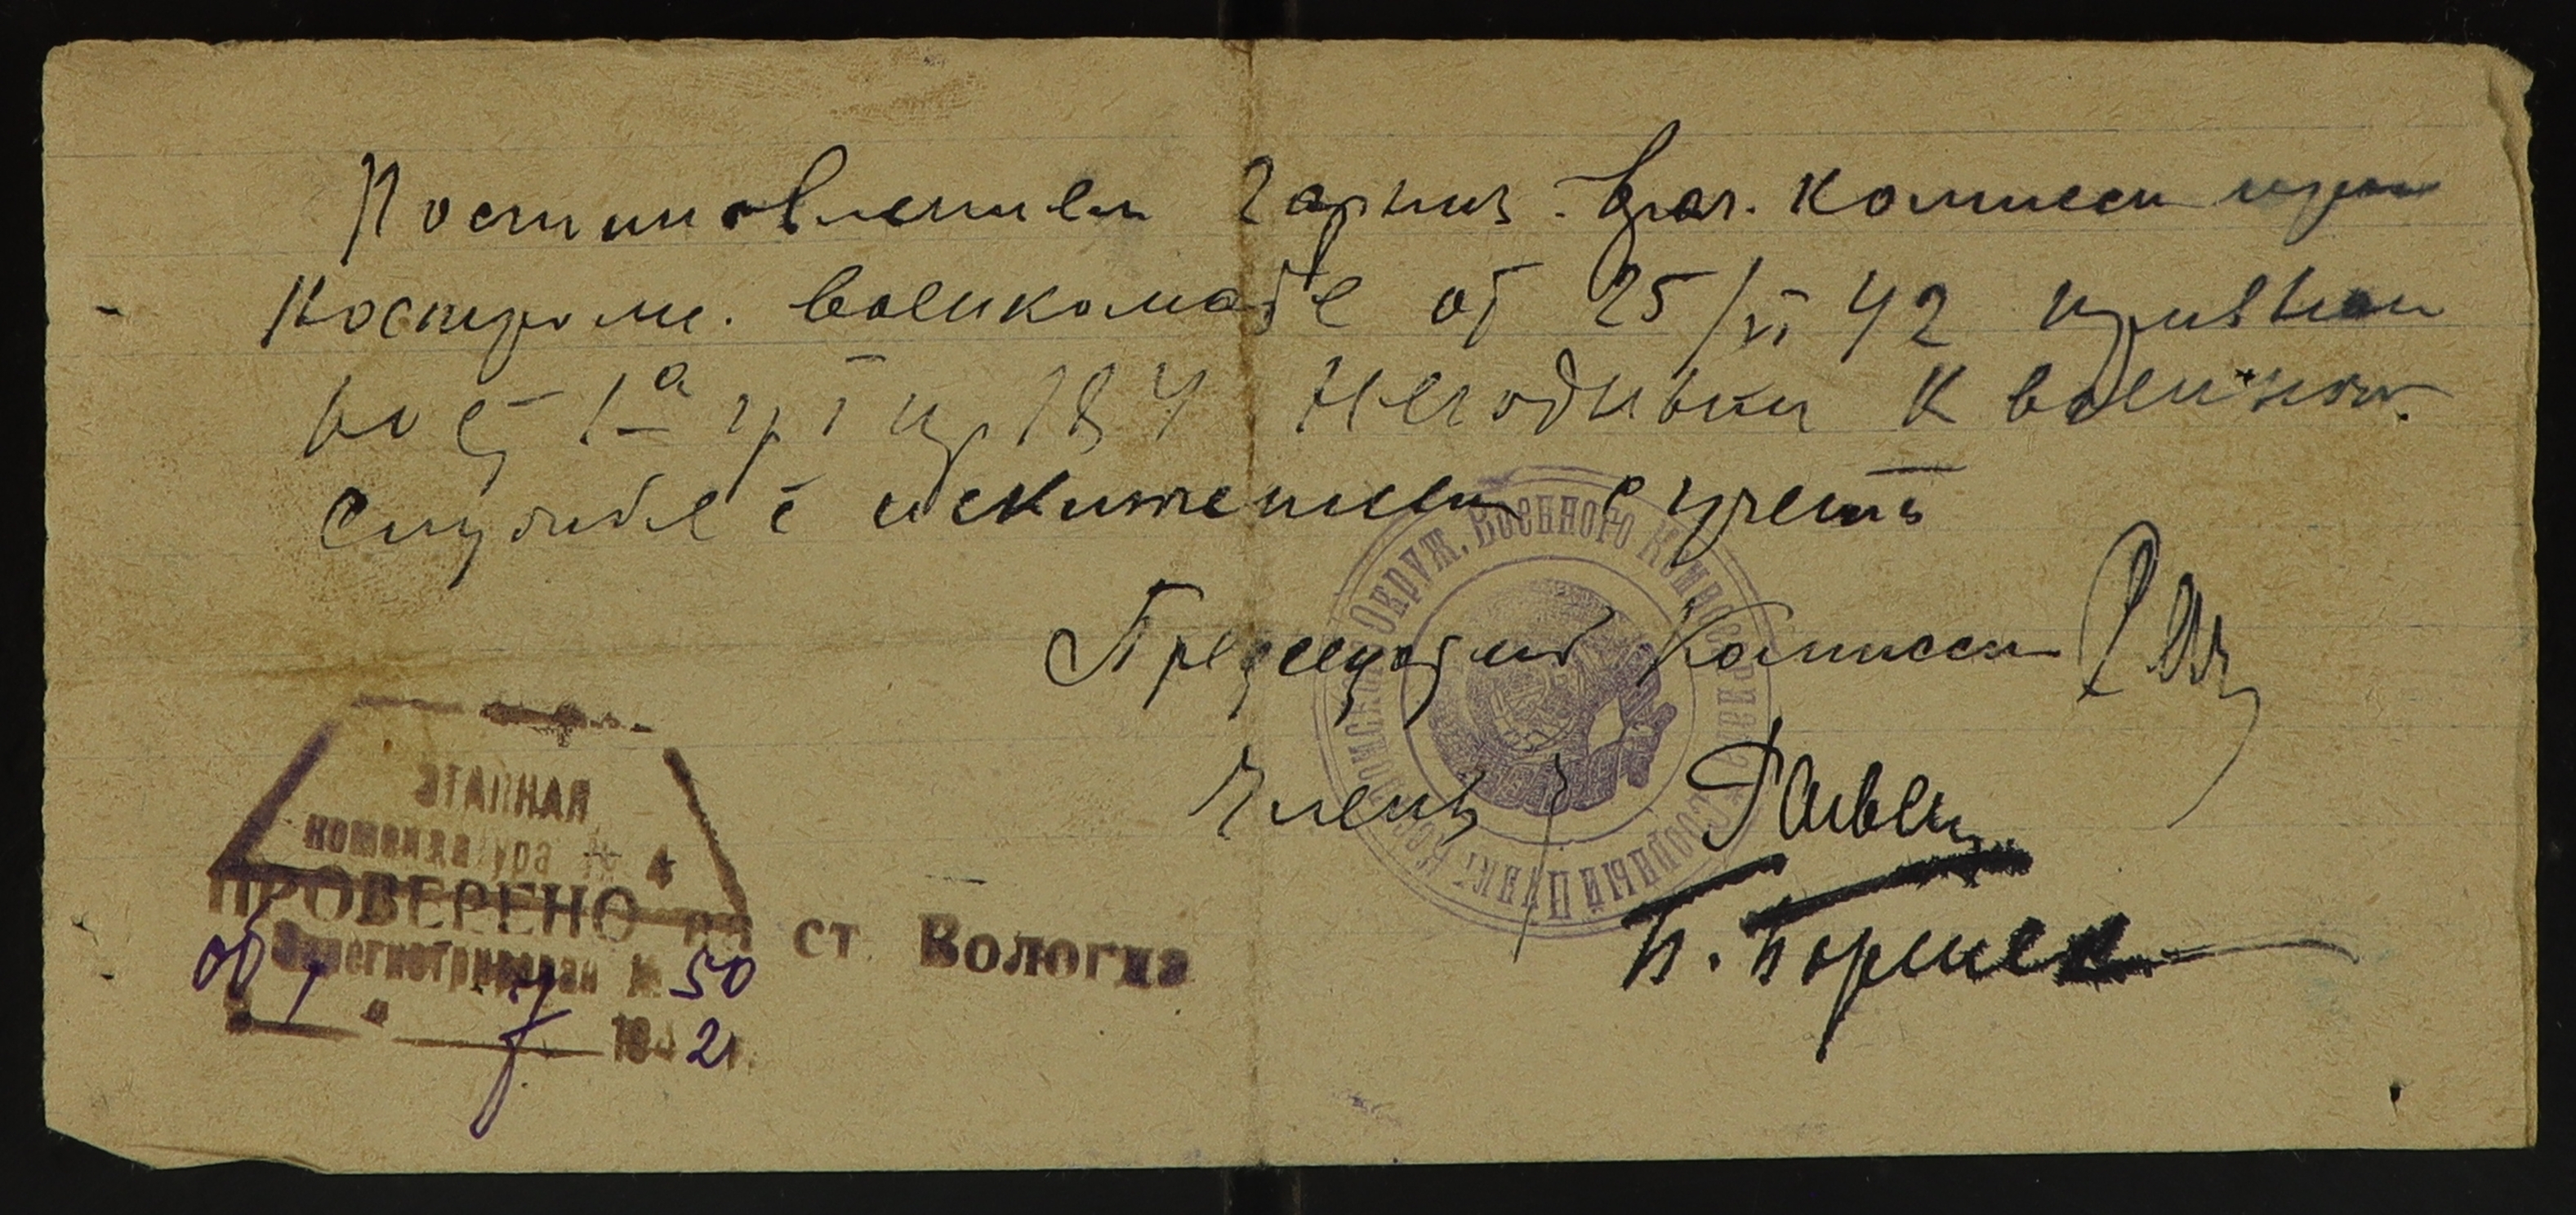 Постановлением гарниз. врач. комиссии при
Костром. военкомате от 25/VI 42 признан
по ст 1а гр I пр 184 Негодным к военной.
службе с исключением с учета
Председатель Комиссии
Члены
ЭТАПНАЯ
комендатура № 4
ПРОВЕРЕНО на ст. Вологда
Зарегистрирован № 50
7 1942 г.
Окруж. Военного Комиссариата
Сборный Пункт